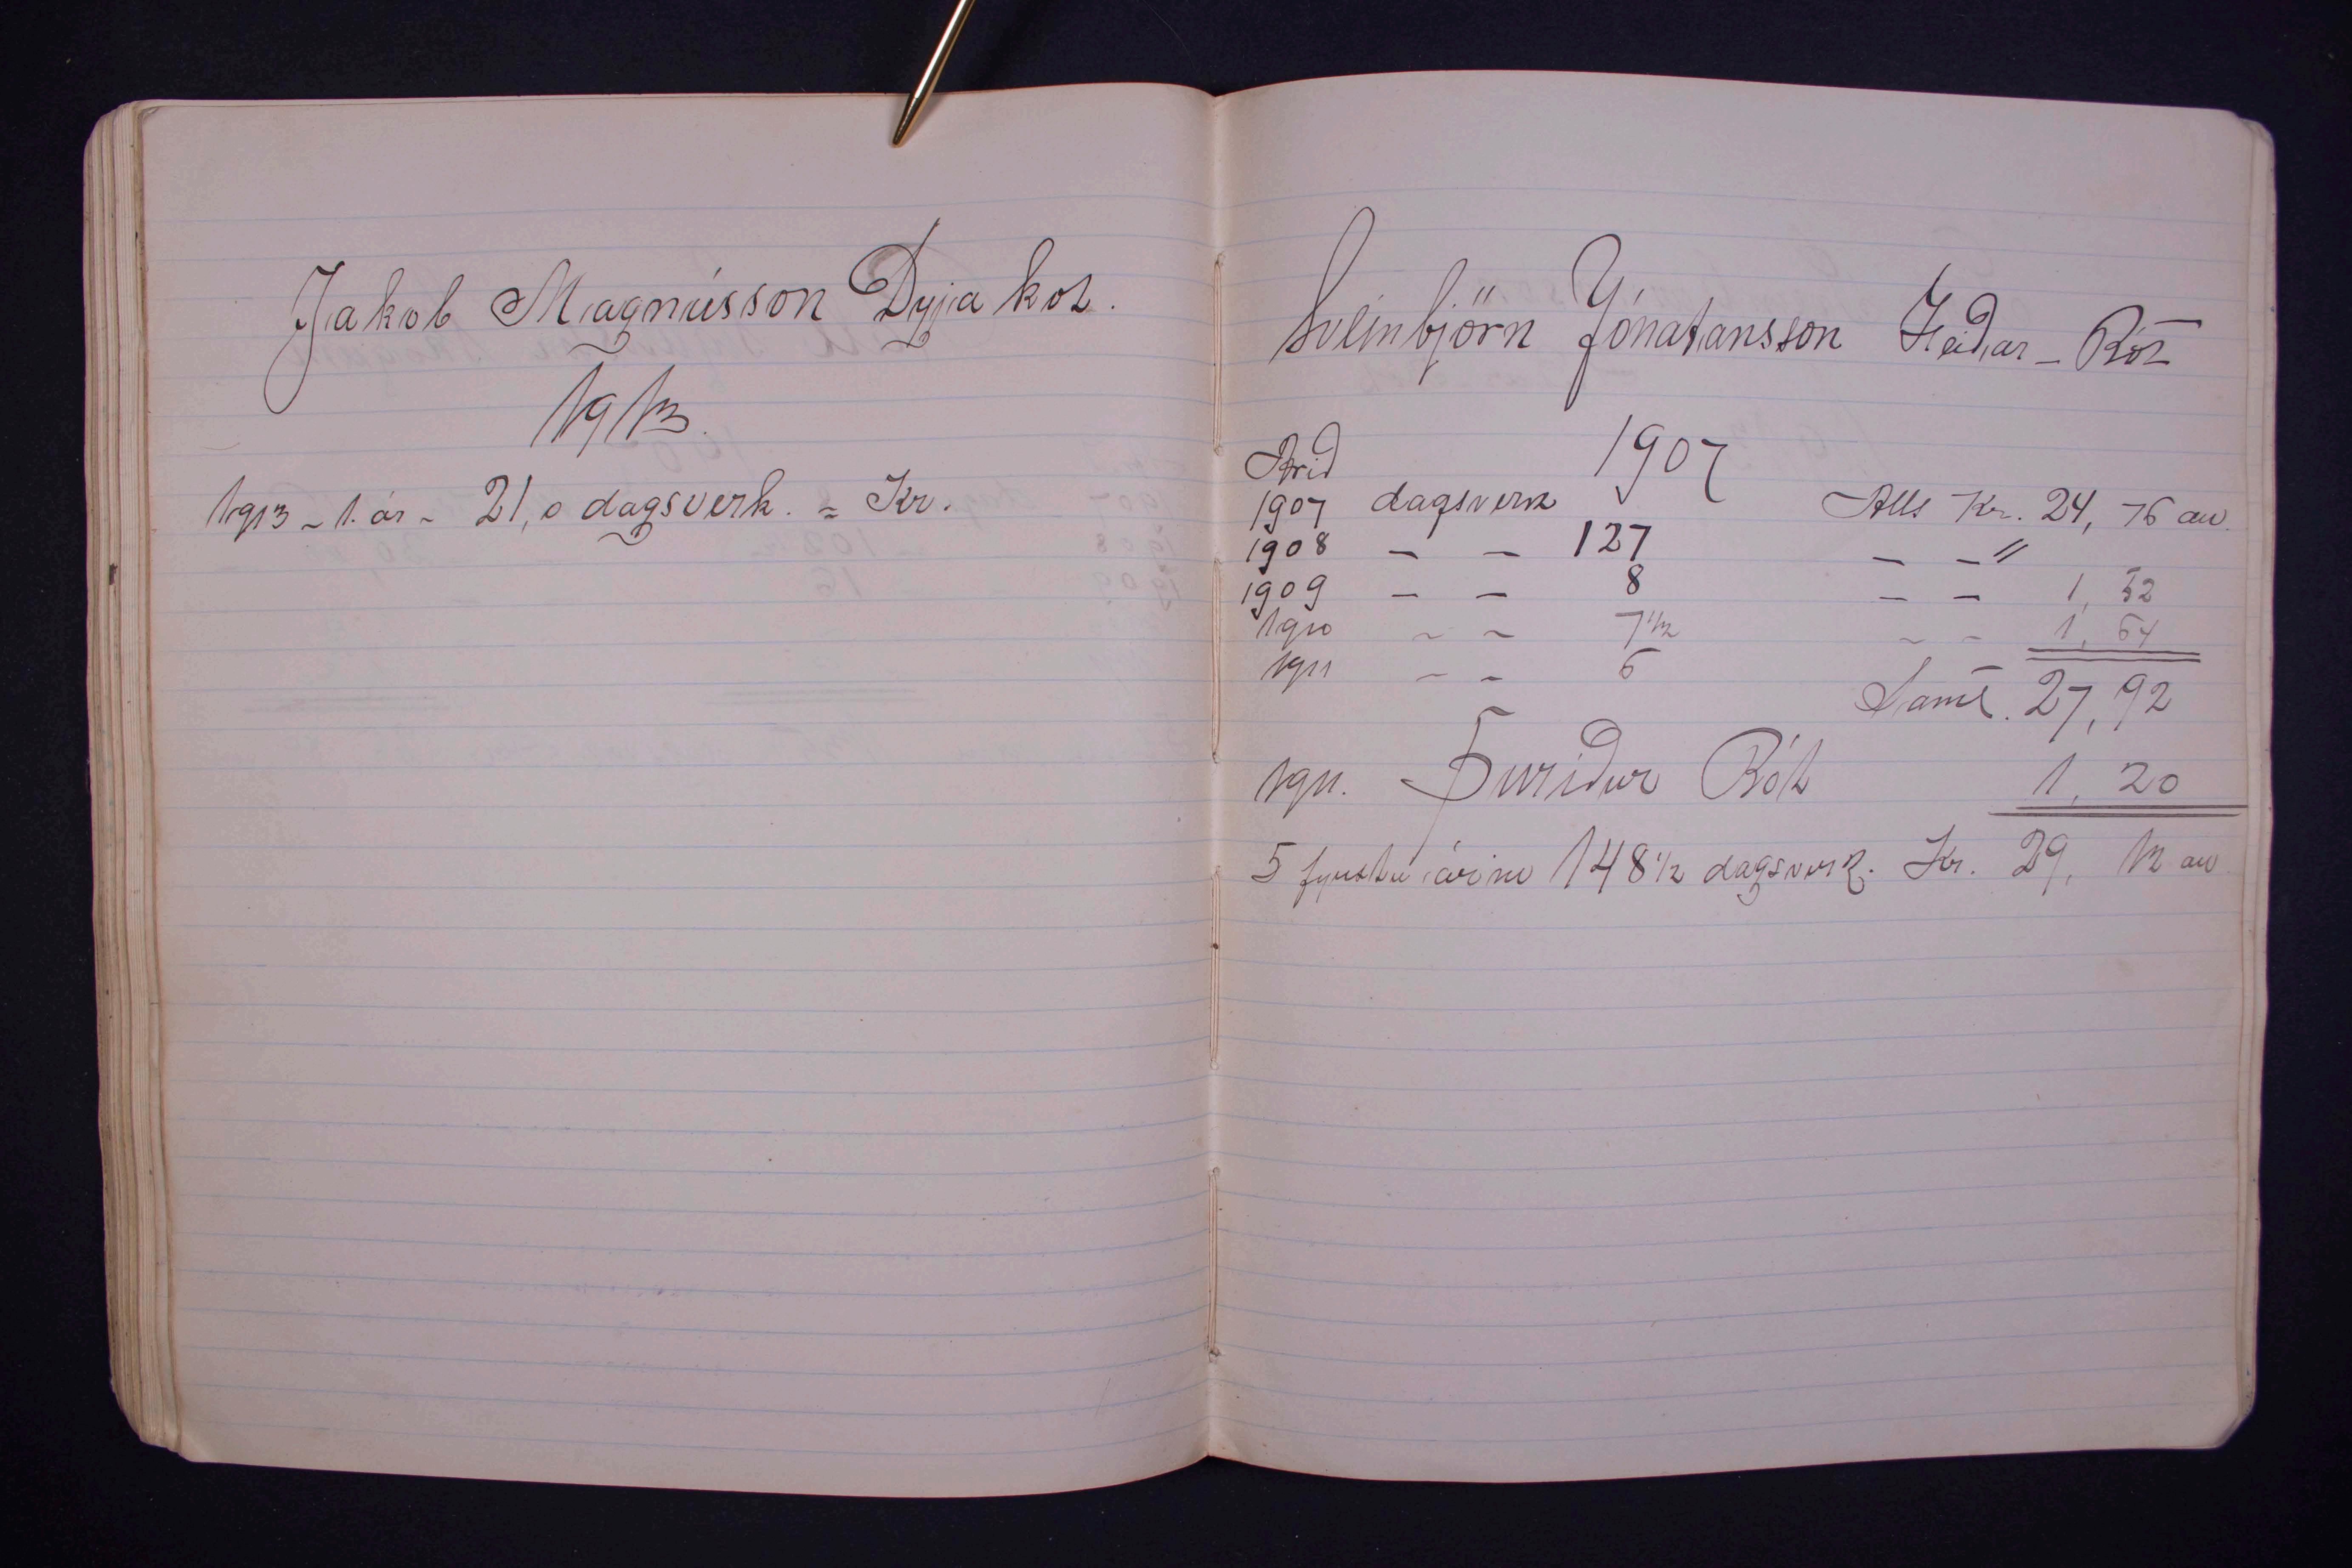 Jakob Magnússon Dyjakot.
1913.
1913 - 1. ár - 21,0 dagsverk. = Kr.
Sveinbjörn Jónatansson Heidar - Bót
Árid 1907
1907 dagsverk Alls Kr. 24, 76 au
1908 — — 127 — — "
1909 — — 8 — — 1, 52
1910 - - 7 1/2 - - 1, 64
1911 - - 6
Samt. 27, 92
1911. Þuridur Bót 1, 20
5 fyrstu árinn 148 1/2 dagsverk. Kr. 29, 12 au